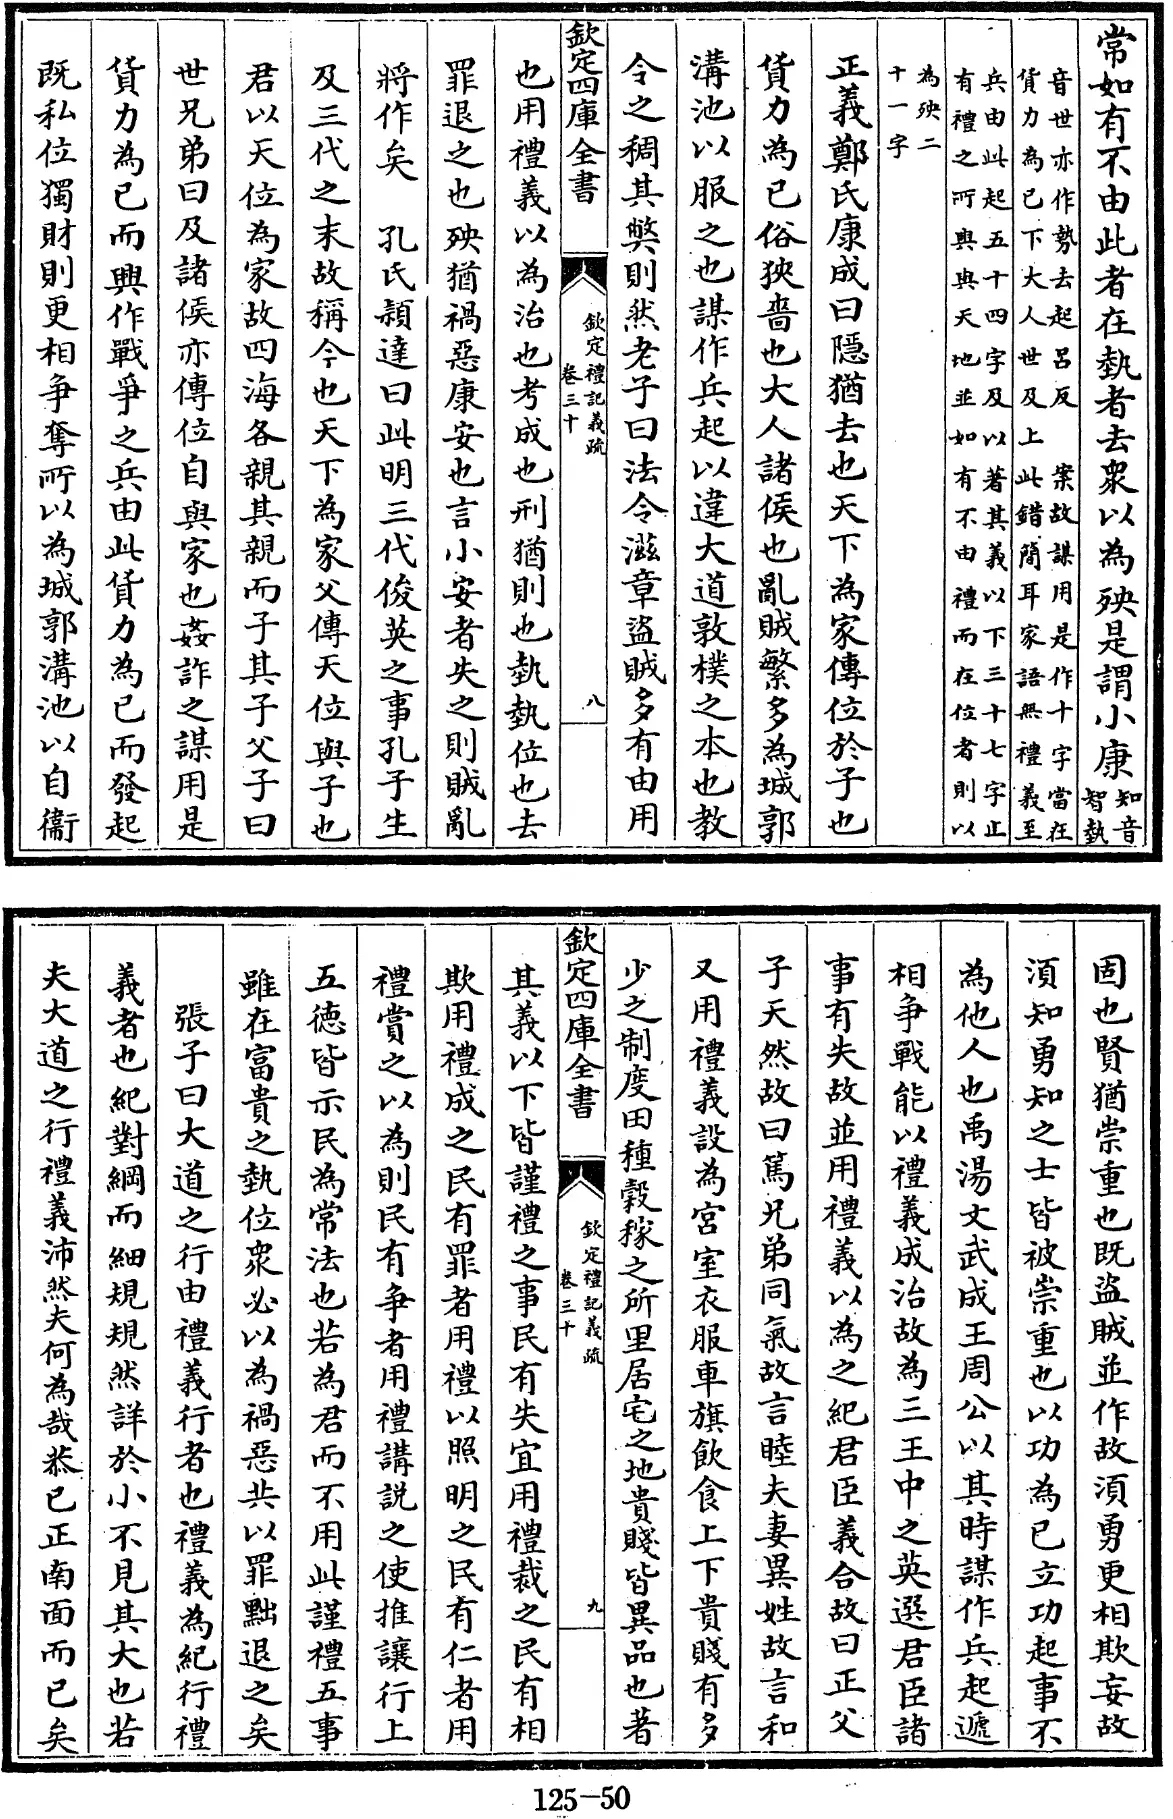 常如有不由此者在埶者去衆以為殃是謂小康知音智埶
音世亦作勢去起呂反　案故謀用是作十字當在
貨力為已下大人世及上　此錯簡耳家語無禮義至
兵由此起五十四字及以著其義以下三十七字止
有禮之所興與天地並如有不由禮而在位者則以
為殃二
十一字
正義鄭氏康成曰隱猶去也天下為家傳位於子也
貨力為已俗狹嗇也大人諸侯也亂賊繁多為城郭
溝池以服之也謀作兵起以違大道敦樸之本也教
令之稠其獘則然老子曰法令滋章盜賊多有由用
欽定四庫全書
欽定禮記義疏
卷三十
八
也用禮義以為治也考成也刑猶則也埶埶位也去
罪退之也殃猶禍惡康安也言小安者失之則賊亂
將作矣　孔氏頴達曰此明三代俊英之事孔子生
及三代之末故稱今也天下為家父傳天位與子也
君以天位為家故四海各親其親而子其子父子曰
世兄弟曰及諸侯亦傳位自與家也姦詐之謀用是
貨力為已而興作戰爭之兵由此貨力為已而發起
既私位獨財則更相争奪所以為城郭溝池以自衞
固也賢猶崇重也既盜賊並作故須勇更相欺妄故
須知勇知之士皆被崇重也以功為已立功起事不
為他人也禹湯文武成王周公以其時謀作兵起遞
相争戰能以禮義成治故為三王中之英選君臣諸
事有失故並用禮義以為之紀君臣義合故曰正父
子天然故曰篤兄弟同氣故言睦夫妻異姓故言和
又用禮義設為宮室衣服車旗飲食上下貴賤有多
少之制度田種穀稼之所里居宅之地貴賤皆異品也著
欽定四庫全書
欽定禮記義疏
卷三十
九
其義以下皆謹禮之事民有失宜用禮裁之民有相
欺用禮成之民有罪者用禮以照明之民有仁者用
禮賞之以為則民有争者用禮講説之使推讓行上
五徳皆示民為常法也若為君而不用此謹禮五事
雖在富貴之埶位衆必以為禍惡共以罪黜退之矣
張子曰大道之行由禮義行者也禮義為紀行禮
義者也紀對綱而細規規然詳於小不見其大也若
夫大道之行禮義沛然夫何為哉恭已正南面而已矣
125-50